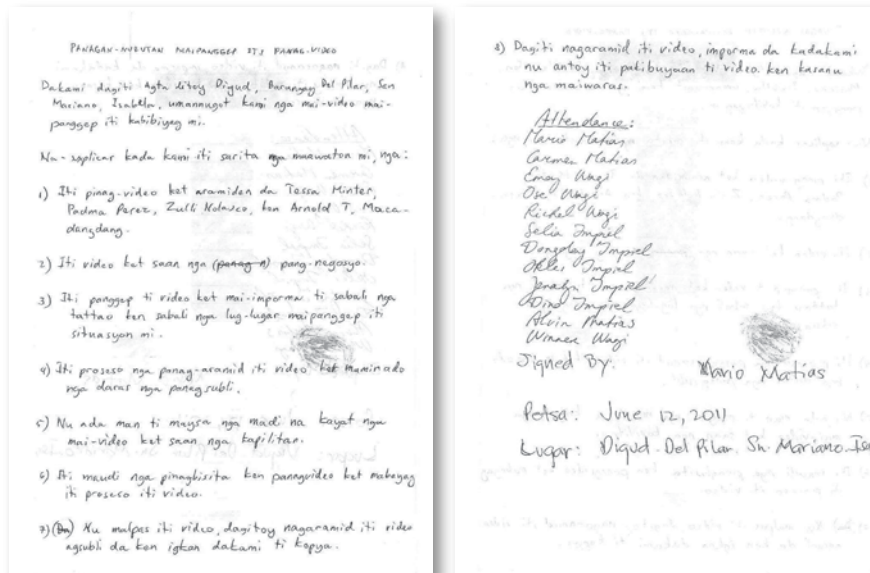 PANAGAN-NUBUTAN MAIPANGGEP ITI PANAG-VIDEO
Dakami dagiti Agta ditoy Digud, Barangay Del Pilar, San
Mariano, Isabela, umannugot kami nga mai-video mai-
panggep iti kabibiyag mi.
Na-explicar kada kami iti sarita nga maawatan mi, nga:
1) Iti pinag-video ket aramiden da Tessa Minter,
Padma Perez, Zulfi Nolasco, ken Arnold T. Maca-
dangdang.
2) Iti video ket saan nga (panag n) pang-negosyo.
3) Iti panggep ti video ket mai-imporma ti sabali nga
tattao ken sabali nga lug-lugar maipanggep iti
situasyon mi.
4) Iti proseso nga panag-aramid iti video ket maminado
nga daras nga panagsubli.
5) Nu ada man ti maysa nga madi na kayat nga
mai-video ket saan nga kapilitan.
6) Iti maudi nga pinagbisita ken panagvideo ket mabayag
iti proseso iti video.
7) (Da) Nu malpas iti video, dagitoy nagaramid iti video
agsubli da ken igkan dakami ti kopya.
8) Dagiti nagaramid iti video, imporma da kadakami
nu antoy iti pakibuyaan ti video ken kasanu
nga maiwaras.
Attendance:
Mario Matias
Carmen Matias
Emoy Wagi
Ose Wagi
Richel Wagi
Selia Impiel
Dongolay Impiel
Okles Impiel
Jenalyn Impiel
Dino Impiel
Alvin Matias
Winner Wagi
Signed By: Mario Matias
Petsa: June 12, 2011
Lugar: Digud. Del Pilar, Sn. Mariano. Isa